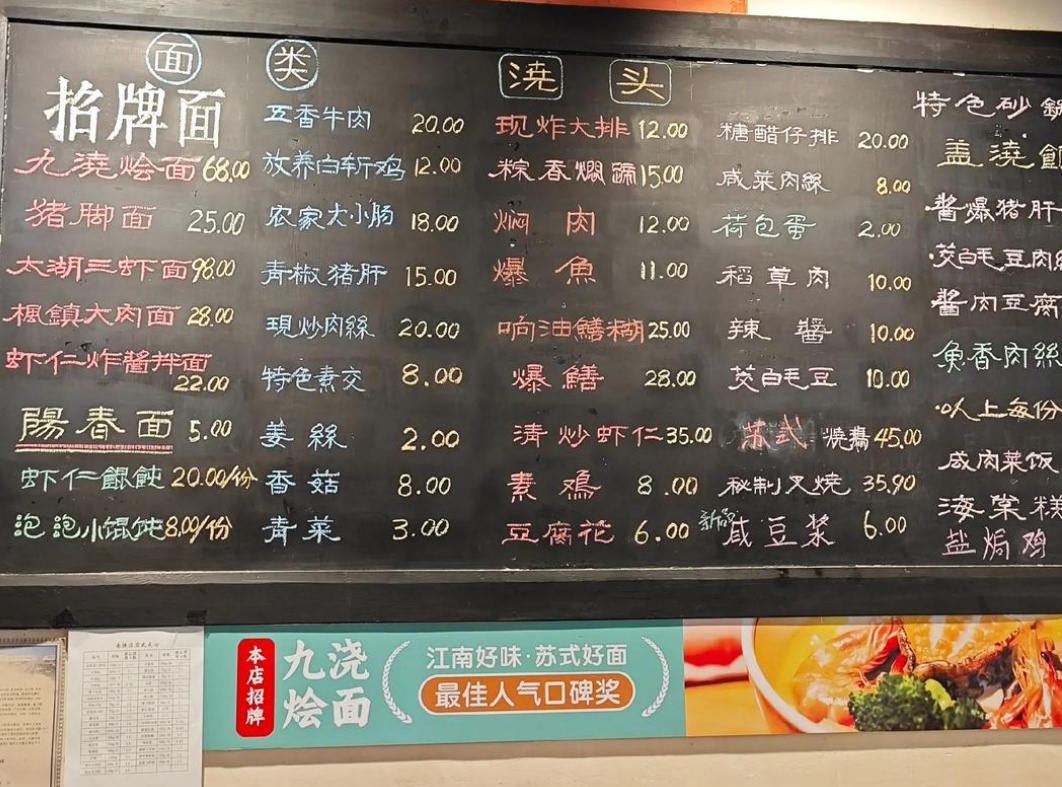 面 类
招牌面
九澆烩面 68.00
猪脚面 25.00
太湖三虾面 98.00
楓鎮大肉面 28.00
虾仁炸醬拌面
22.00
陽春面 5.00
虾仁餛飩 20.00/份
泡泡小馄饨 8.00/份
五香牛肉 20.00
放养白斩鸡 12.00
农家大小肠 18.00
青椒猪肝 15.00
現炒肉絲 20.00
特色素交 8.00
姜絲 2.00
香菇 8.00
青菜 3.00
浇头
现炸大排 12.00
粽香焖蹄 15.00
焖肉 12.00
爆魚 11.00
响油鱔糊 25.00
爆鱔 28.00
清炒虾仁 35.00
素鳮 8.00
豆腐花 6.00
糖醋仔排 20.00
咸菜肉絲 8.00
荷包蛋 2.00
稻草肉 10.00
辣醬 10.00
茭白毛豆 10.00
苏式燒鵝 45.00
秘制叉燒 35.90
新品 咸豆浆 6.00
特色砂鍋
盖澆飯
·醬爆猪肝
·茭白毛豆肉絲
醬肉豆腐
魚香肉絲
·以上每份
咸肉菜饭
海棠糕
盐焗鸡
本店招牌
九浇烩面
江南好味·苏式好面
最佳人气口碑奖